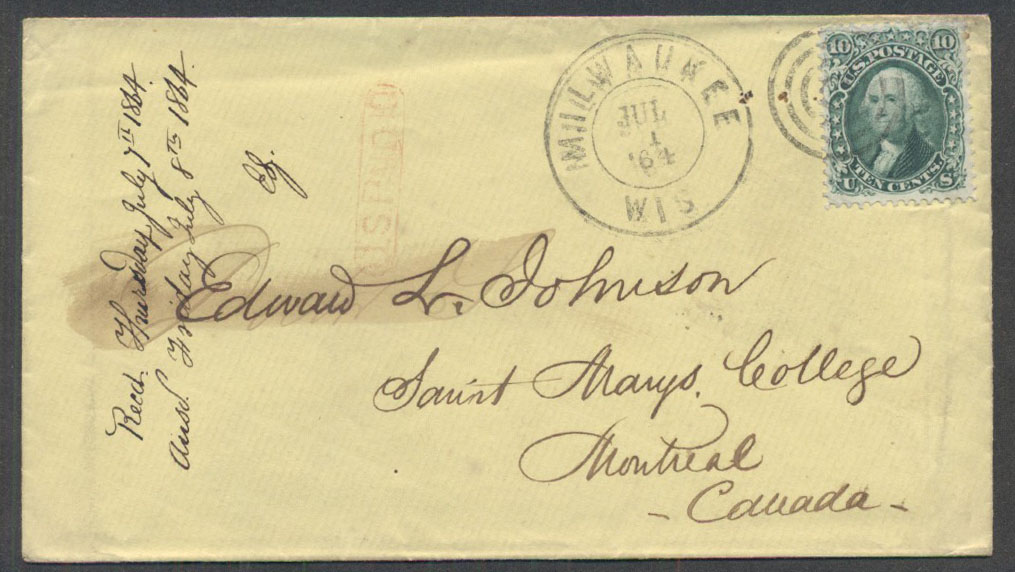 Recd. Thursday July 7th 1864.
Ansd. Friday July 8th 1864.
MILWAUKEE
JUL
4
'64
WIS
10 10
U.S. POSTAGE
TEN CENTS.
U S
Edward L. Johnson
Saint Marys. College
Montreal
- Canada -